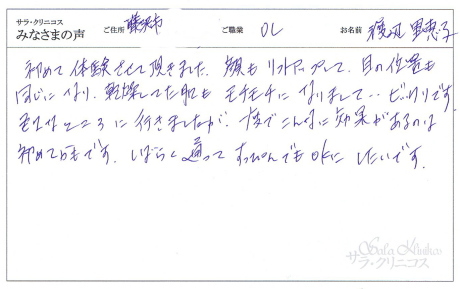 サラ・クリニコス
みなさまの声
ご住所 藤沢市
ご職業 OL
お名前 渡辺 里恵子
初めて体験させて頂きました。顔もリフトアップして、目の位置も
同じになり、乾燥してた肌もモチモチになりまして‥ビックリです。
色々なところに行きましたが、一度でこんなに効果があるのは
初めてです。しばらく通ってすっぴんでもOKにしたいです。
Sala Klinikos
サラ・クリニコス